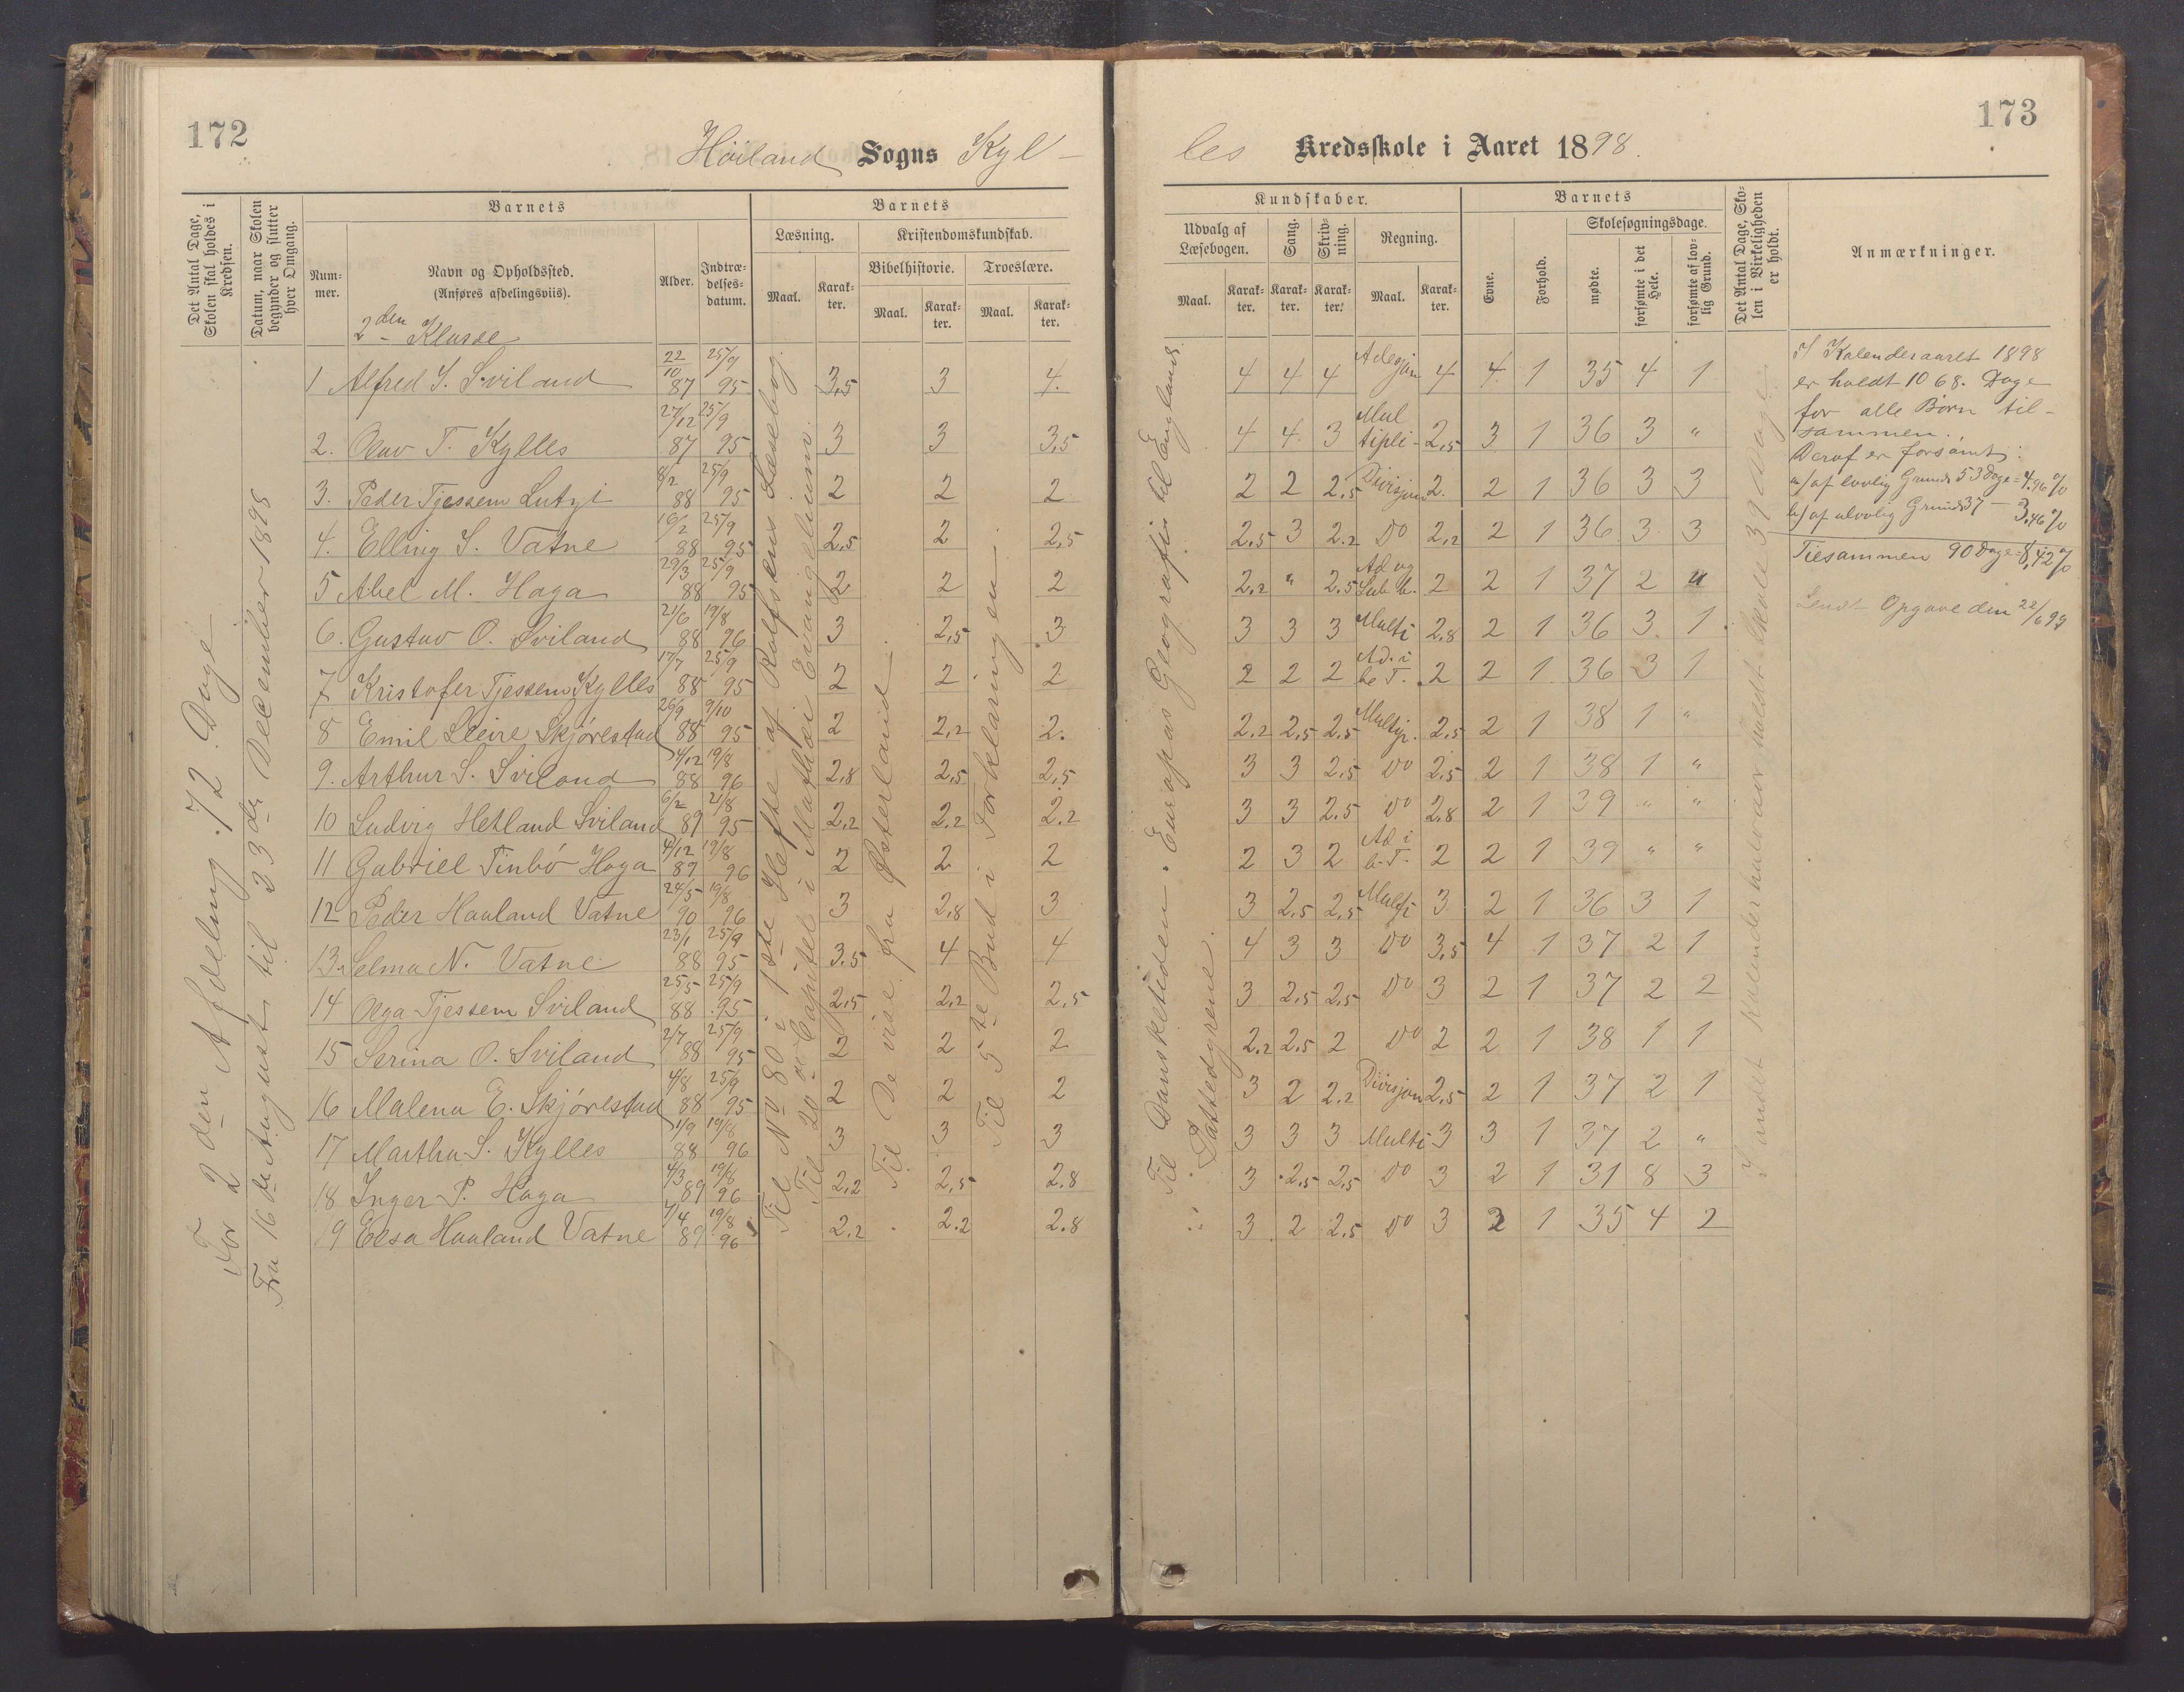 172
Höiland Sogns Kyl-
Det Antal Dage, Skolen skal holdes i Kredsen.
Datum, naar Skolen begynder og slutter hver Omgang.
Barnets
Barnets
Num-mer.
Navn og Opholdssted.
(Anføres afdelingsviis).
Alder.
Indtræ-delses-datum.
Læsning.
Kristendomskundskab.
Bibelhistorie.
Troeslære.
Maal.
Karak-ter.
Maal.
Karak-ter.
Maal.
Karak-ter.
2den Klasse
For 2den Afdeling: 72 Dage
Fra 16de August til 23de December 1898
Til No 80 i 1ste Hefte af Rolfsens Læsebog.
Til 20de Capitel i Mathæi Evangelium.
Til De vise fra Østerland
Til 5te Bud i Forklaringen
1 Alfred S. Sviland 22/10 87 25/9 95 3,5 3 4.
2. Olav T. Kylles 27/12 87 25/9 95 3 3 3,5
3. Peder Tjessem Lutsi 8/2 88 25/9 95 2 2 2
4. Elling S. Vatne 16/2 88 25/9 95 2,5 2 2,5
5 Abel M. Haga 29/3 88 25/9 95 2 2 2
6. Gustav O. Sviland 21/6 88 19/8 96 3 2,5 3
7 Kristofer Tjessem Kylles 17/7 88 25/9 95 2 2 2
8 Emil Leire Skjørestad 26/9 88 9/10 95 2 2,2 2.
9. Arthur S. Sviland 4/12 88 19/8 96 2,8 2,5 2,5
10 Ludvig Hetland Sviland 6/2 89 21/8 95 2,2 2.2 2.2
11 Gabriel Tinbö Haga 4/12 89 19/8 96 2 2 2
12 Peder Haaland Vatne 24/5 90 19/8 96 3 2,8 3
13. Selma N. Vatne 23/1 88 25/9 95 3.5 4 4
14 Olga Tjessem Sviland 25/5 88 25/9 95 2,5 2,2 2,5
15 Serina O. Sviland 2/7 88 25/9 95 2 2 2
16 Malena E. Skjörestad 4/8 88 25/9 95 2 2 2
17 Martha S. Kylles 1/9 88 19/8 96 3 3 3
18 Inger P. Haga 4/3 89 19/8 96 2,2 2,5 2.8
19 Elsa Haaland Vatne 7/4 89 19/8 96 2.2 2.2 2.8
173
les Kredsskole i Aaret 1898.
Kundskaber.
Barnets
Udvalg af Læsebogen.
Sang.
Skriv-ning.
Regning.
Evne.
Forhold.
Skolesøgningsdage.
Det Antal Dage, Sko-len i Virkeligheden er holdt.
Anmærkninger.
Maal.
Karak-ter.
Karak-ter.
Karak-ter.
Maal.
Karak-ter.
mødte.
forsømte i det Hele.
forsømte af lov-lig Grund.
Til Dansketiden. Europas Geografi til Englands
Pattedyrene.
I andet Kalenderhalvaar holdt Skole 39 Dage
4 4 4 Adegion 4 4 1 35 4 1
4 4 3 Multipli- 2,5 3 1 36 3 "
2 2 2.5 Divisjon 2. 2 1 36 3 3
2.5 3 2.2 Do 2,2 2 1 36 3 3
2,2 " 2.5 Ad og Sub b. 2 2 1 37 2 "
3 3 3 Multi 2,8 2 1 36 3 1
2 2 2 Ad. i be T. 2 2 1 36 3 1
2.2 2,5 2.5 Multip. 2,5 2 1 38 1 "
3 3 2.5 Do 2,5 2 1 38 1 "
3 3 2.5 Do 2.8 2 1 39 " "
2 3 2 Ad i b-T. 2 2 1 39 " "
3 2,5 2,5 Multi 3 2 1 36 3 1
4 3 3 Do 3,5 4 1 37 2 1
3 2,5 2,5 Do 3 2 1 37 2 2
2.2 2.5 2 Do 2 2 1 38 1 1
3 2 2.2 Divisjon 2,5 2 1 37 2 1
3 3 3 Multi 3 3 1 37 2 "
3 2.5 2,5 Do 3 2 1 31 8 3
3 2 2.5 Do 3 2 1 35 4 2
I Kalenderaaret 1898
er holdt 1068. Dage
for alle Börn til-
sammen.
Deraf er forsömt:
a) af lovlig Grund 53 Dage = 4.96 %
b) af ulovlig Grund 37 — 3,46 %
Tilsammen 90 Dage = 8,42 %
Sendt Opgave den 22/6 99